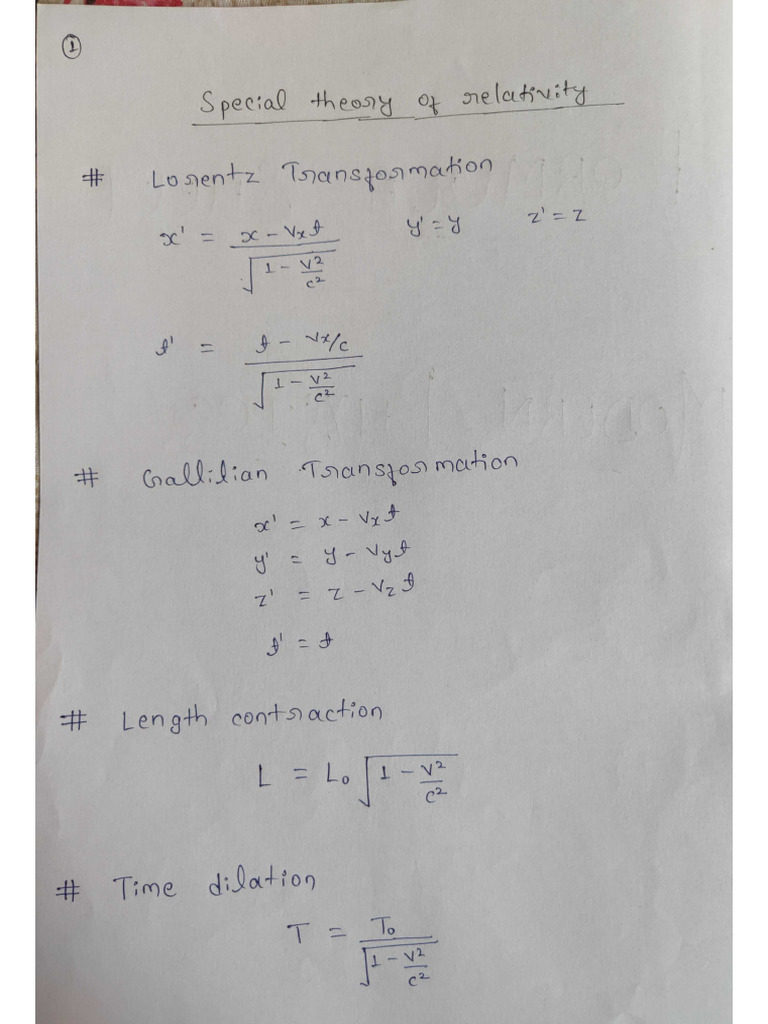 ①
Special theory of relativity
# Lorentz Transformation
x' = (x - Vxt) / √(1 - V²/c²)    y' = y    z' = z
t' = (t - Vx/c) / √(1 - V²/c²)
# Gallilian Transformation
x' = x - Vxt
y' = y - Vyt
z' = z - Vzt
t' = t
# Length contraction
L = L₀ √(1 - V²/c²)
# Time dilation
T = T₀ / √(1 - V²/c²)